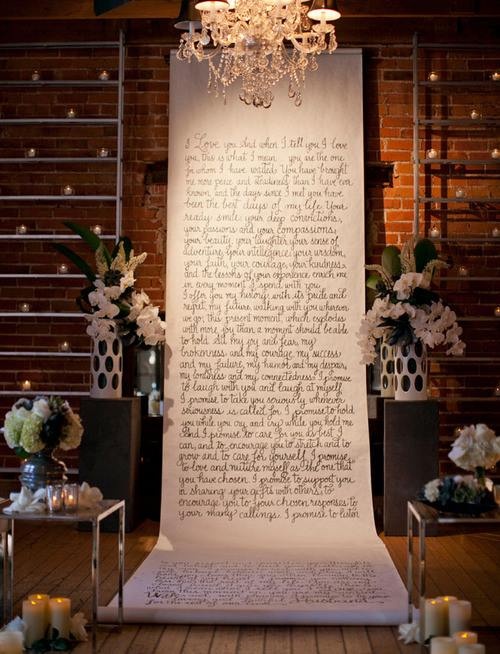 I Love you. And when I tell you I love
you, this is what I mean... you are the one
for whom I have waited. You have brought
me more peace and steadiness than I have ever
known, and the days since I met you have
been the best days of my life. Your
ready smile, your deep convictions,
your passions and your compassions,
your beauty, your laughter, your sense of
adventure, your intelligence, your wisdom,
your faith, your courage, your kindness
and the lessons of your experience enrich me
in every moment I spend with you.
I offer you my history with its pride and
regret, my future, walking with you wherever
we go, this present moment, which explodes
with more joy than a moment should be able
to hold. All my joy and fear, my
brokenness and my courage, my success
and my failure, my humor and my despair,
my loneliness and my connectedness. I promise
to laugh with you and laugh at myself.
I promise to take you seriously whenever
seriousness is called for. I promise to hold
you while you cry, and cry while you hold me.
And I promise to care for you as best I
can, and to encourage you to stretch and to
grow and to care for yourself. I promise
to love and nurture myself as the one that
you have chosen. I promise to support you
in sharing your gifts with others, to
encourage you to your chosen responses to
your many callings. I promise to listen